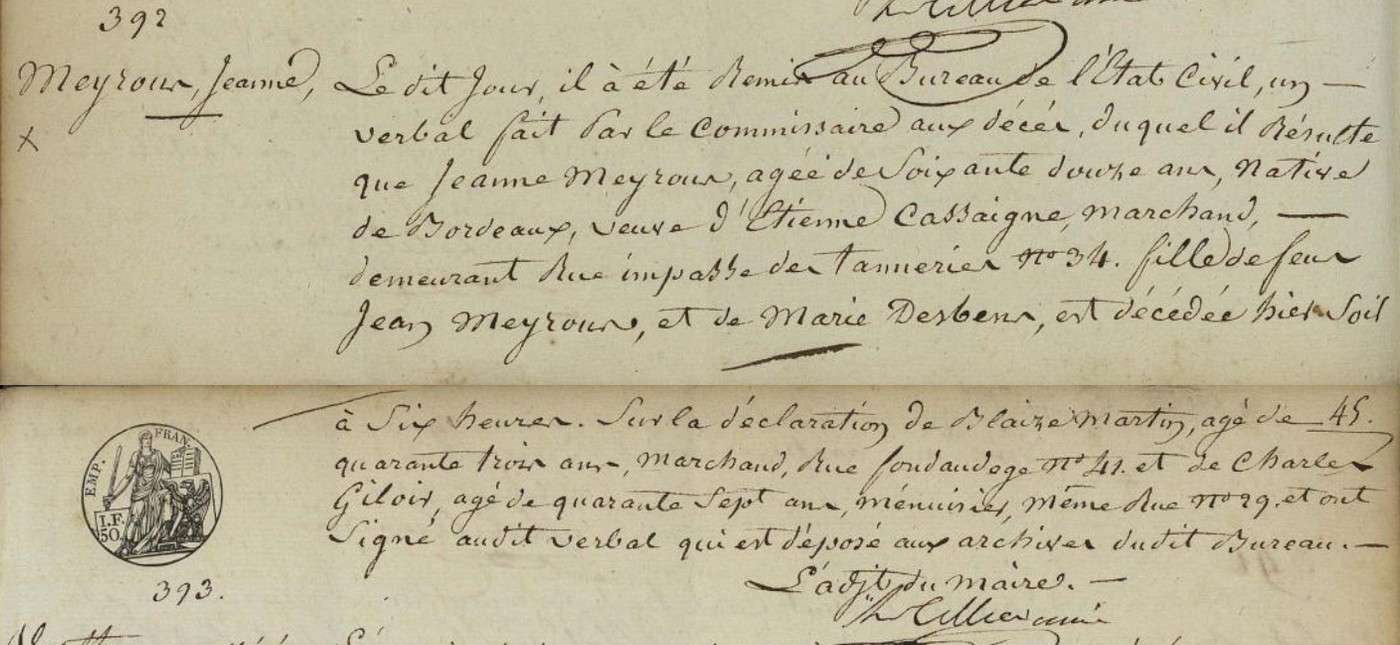 392
Meyrous, Jeanne,
Le dit Jour, il à été Remis au Bureau de l'État Civil, un —
verbal fait Par le Commissaire aux décés, duquel il Résulte
que Jeanne Meyrous, agéé de Soixante douze ans, Native
de Bordeaux, veuve d'Etienne Cassaigne, marchand, —
demeurant Rue impasse des tanneries n° 34. fille de feus
Jean Meyrous, et de Marie Desbens, est décédée hier Soir
à Six heures. Sur la déclaration de Blaize Martin, agé de 45.
quarante trois ans, Marchand, Rue fondaudege n° 41. et de Charles
Giloir, agé de quarante Sept ans, ménuisier, même Rue n° 29. et ont
Signé audit verbal qui est déposé aux archives dudit Bureau. —
L'adjt du maire. —
EMP. FRAN.
I.F.
50.
393.